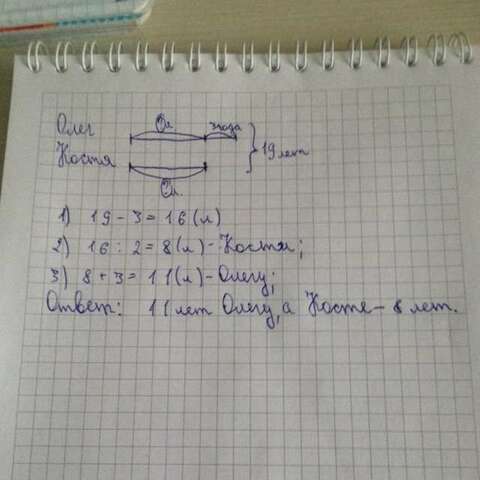 Олег 3года
Костя 19 лет
1) 19 - 3 = 16 (л)
2) 16 : 2 = 8 (л) - Костя;
3) 8 + 3 = 11 (л) - Олегу;
Ответ: 11 лет Олегу, а Косте - 8 лет.